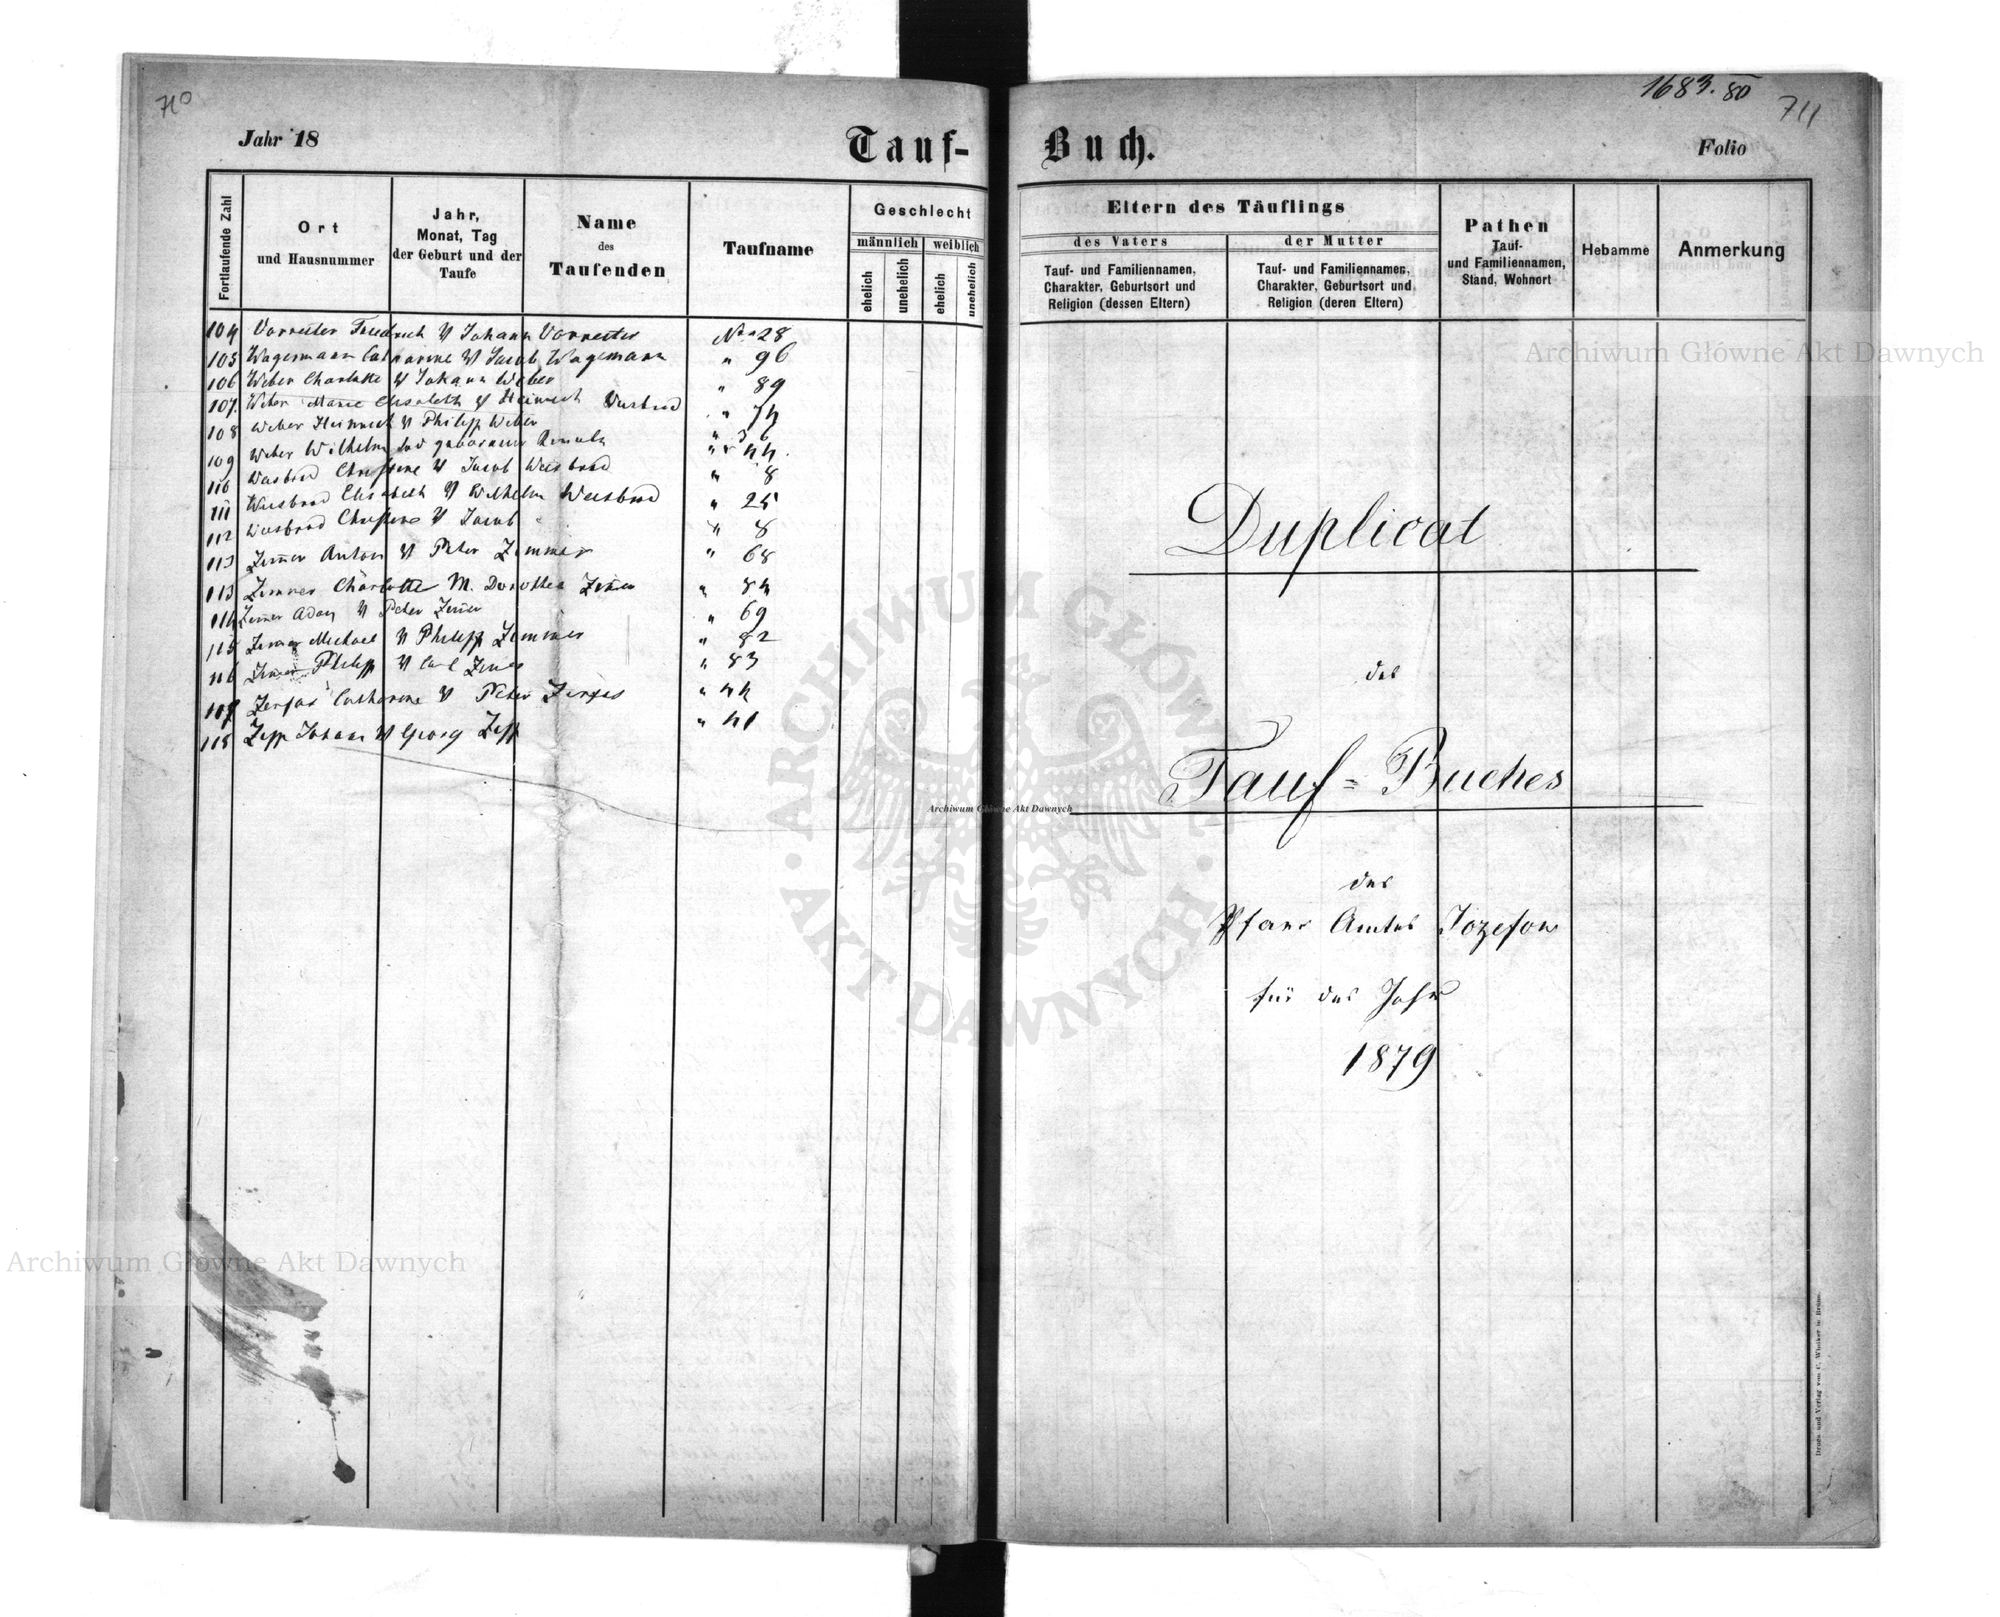 710
Jahr 18
Tauf-
Fortlaufende Zahl
Ort
und Hausnummer
Jahr,
Monat, Tag
der Geburt und der
Taufe
Name
des
Taufenden
Taufname
Geschlecht
männlich weiblich
ehelich
unehelich
ehelich
unehelich
104 Vorreiter Friedrich V Johann Vorreiter No 28
105 Wagemann Catharine V Jacob Wagemann " 96
106 Weber Charlotte V Johann Weber " 89
107. Weber Marie Elisabeth V Heinrich " 74
108 Weber Heinrich V Philipp Weber " 36
109 Weber Wilhelm " 44.
110 Christine V Jacob " 8
111 Elisabeth V Wilhelm Weisbrod " 25
112 Christine V Jacob " " 8
113 Zimer Anton V Peter Zimmer " 68
113 Zimmer Charlotte M. Dorothea Zimer " 84
114 Zimer Adam V Peter Zimer " 69
115 Michael V Philipp Zimmer " 82
116 Zimer Philipp V Carl " 83
117 Zerfas Catharine V Peter Zerfas " 44
118 Zepp Johann V Georg Zepp " 41
1683. 80
711
Buch.
Folio
Eltern des Täuflings
des Vaters
der Mutter
Tauf- und Familiennamen,
Charakter, Geburtsort und
Religion (dessen Eltern)
Tauf- und Familiennamen,
Charakter, Geburtsort und
Religion (deren Eltern)
Pathen
Tauf-
und Familiennamen,
Stand, Wohnort
Hebamme
Anmerkung
Duplicat
des
Tauf=Buches
des
Pfarr Amtes Jozefow
für das Jahr
1879
Archiwum Główne Akt Dawnych
Archiwum Główne Akt Dawnych
Archiwum Główne Akt Dawnych
ARCHIWUM GŁÓWNE · AKT DAWNYCH ·